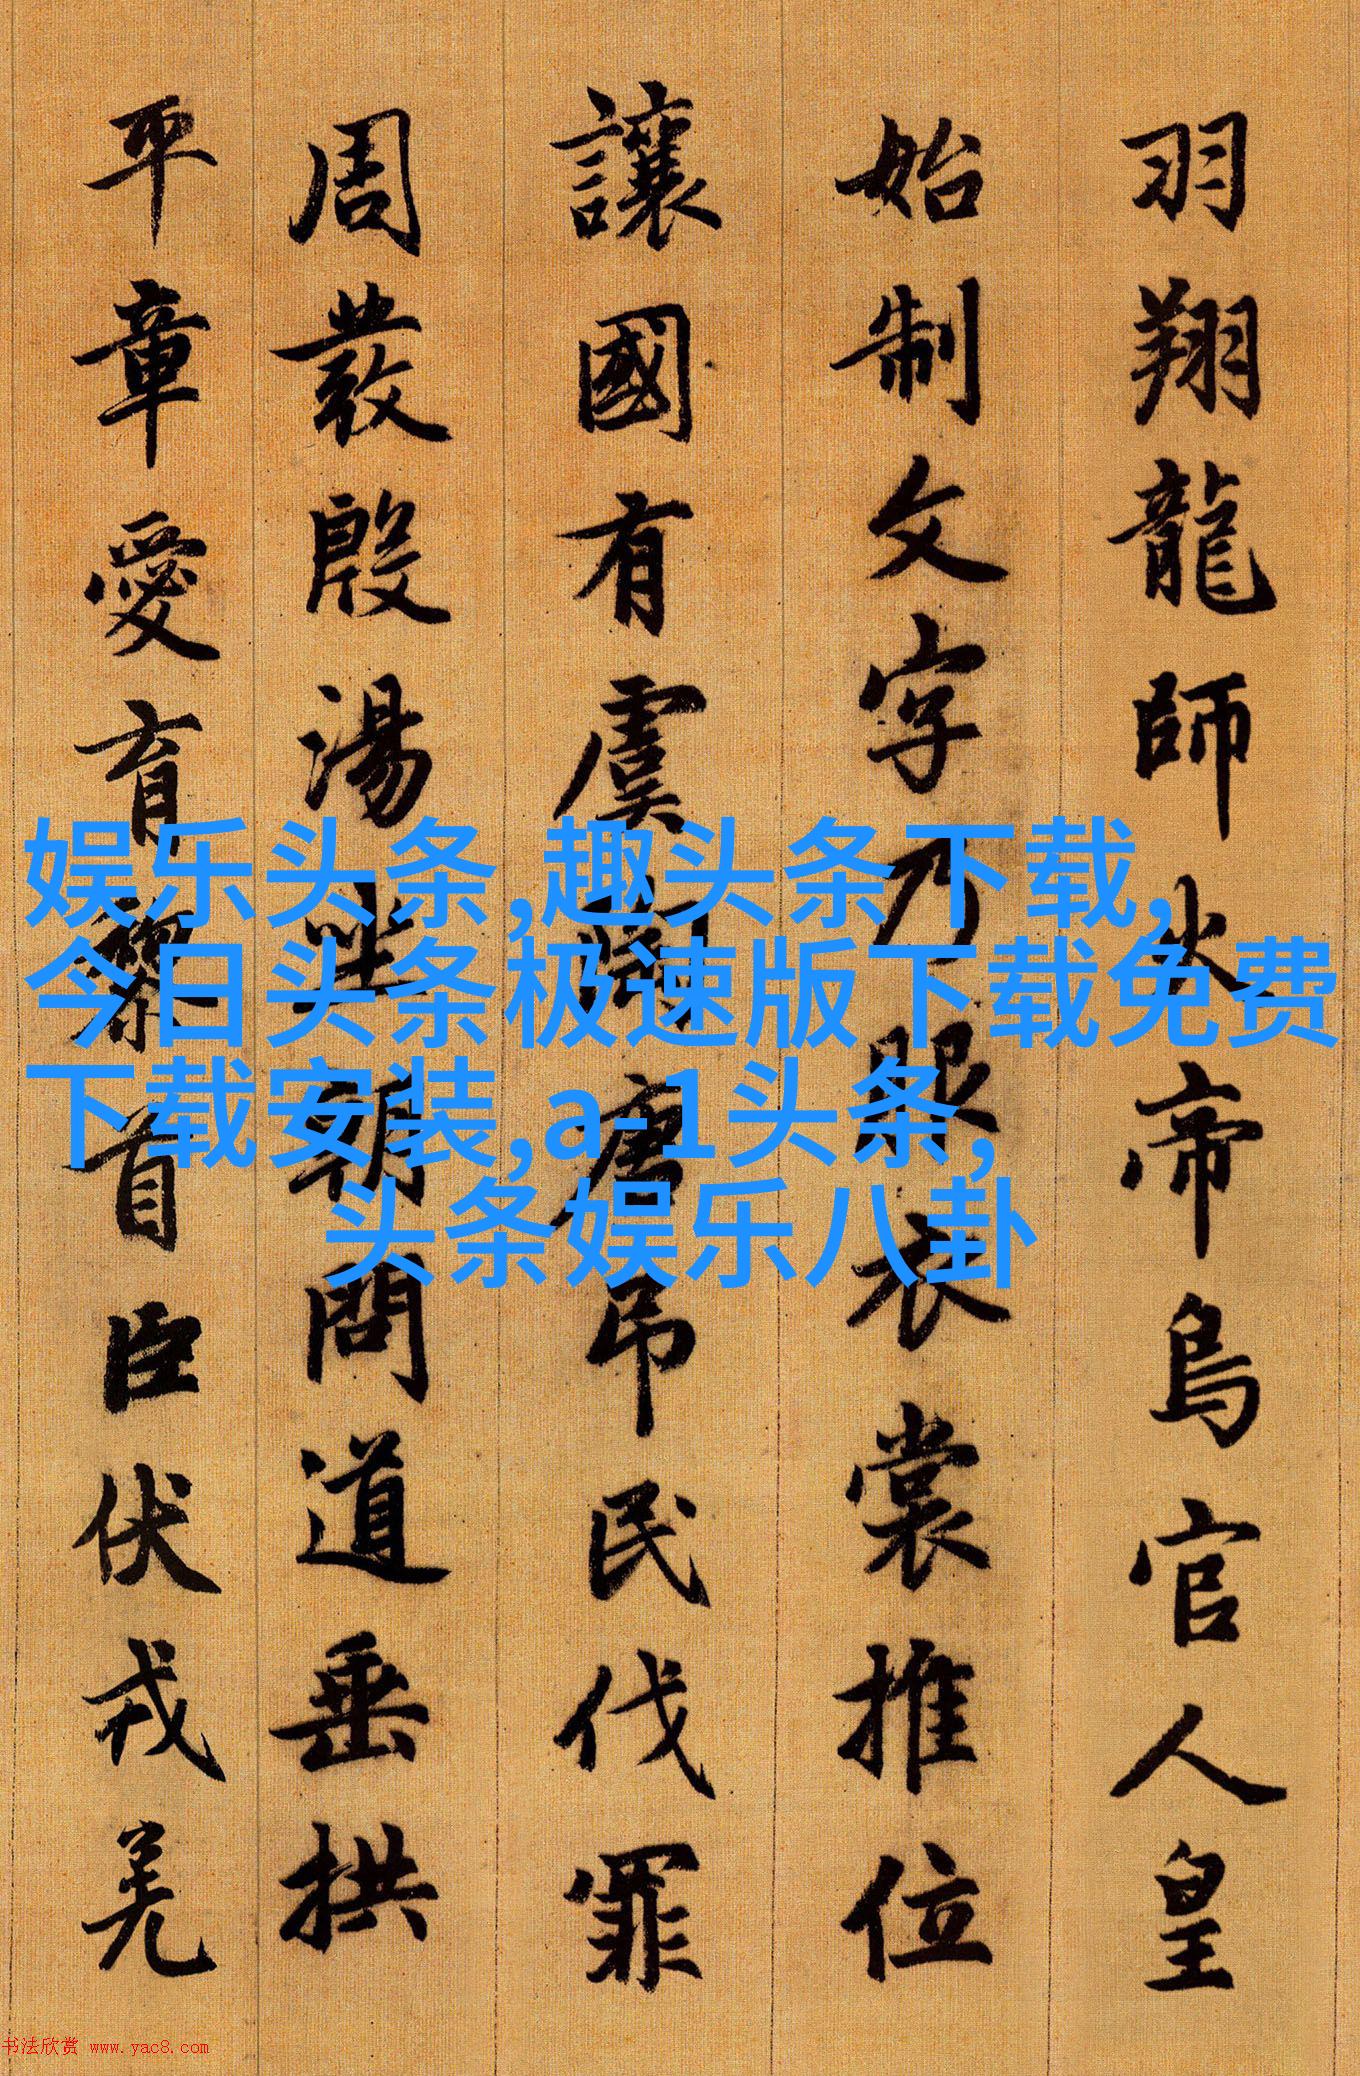 羽翔龍師火帝鳥官人皇
始制文字乃服衣裳推位
讓國有虞陶唐吊民伐罪
周發殷湯坐朝問道垂拱
平章愛育黎首臣伏戎羌
娱乐头条,趣头条下载,
今日头条极速版下载免费
下载安装,a-1头条,
头条娱乐八卦
书法欣赏 www.yac8.com